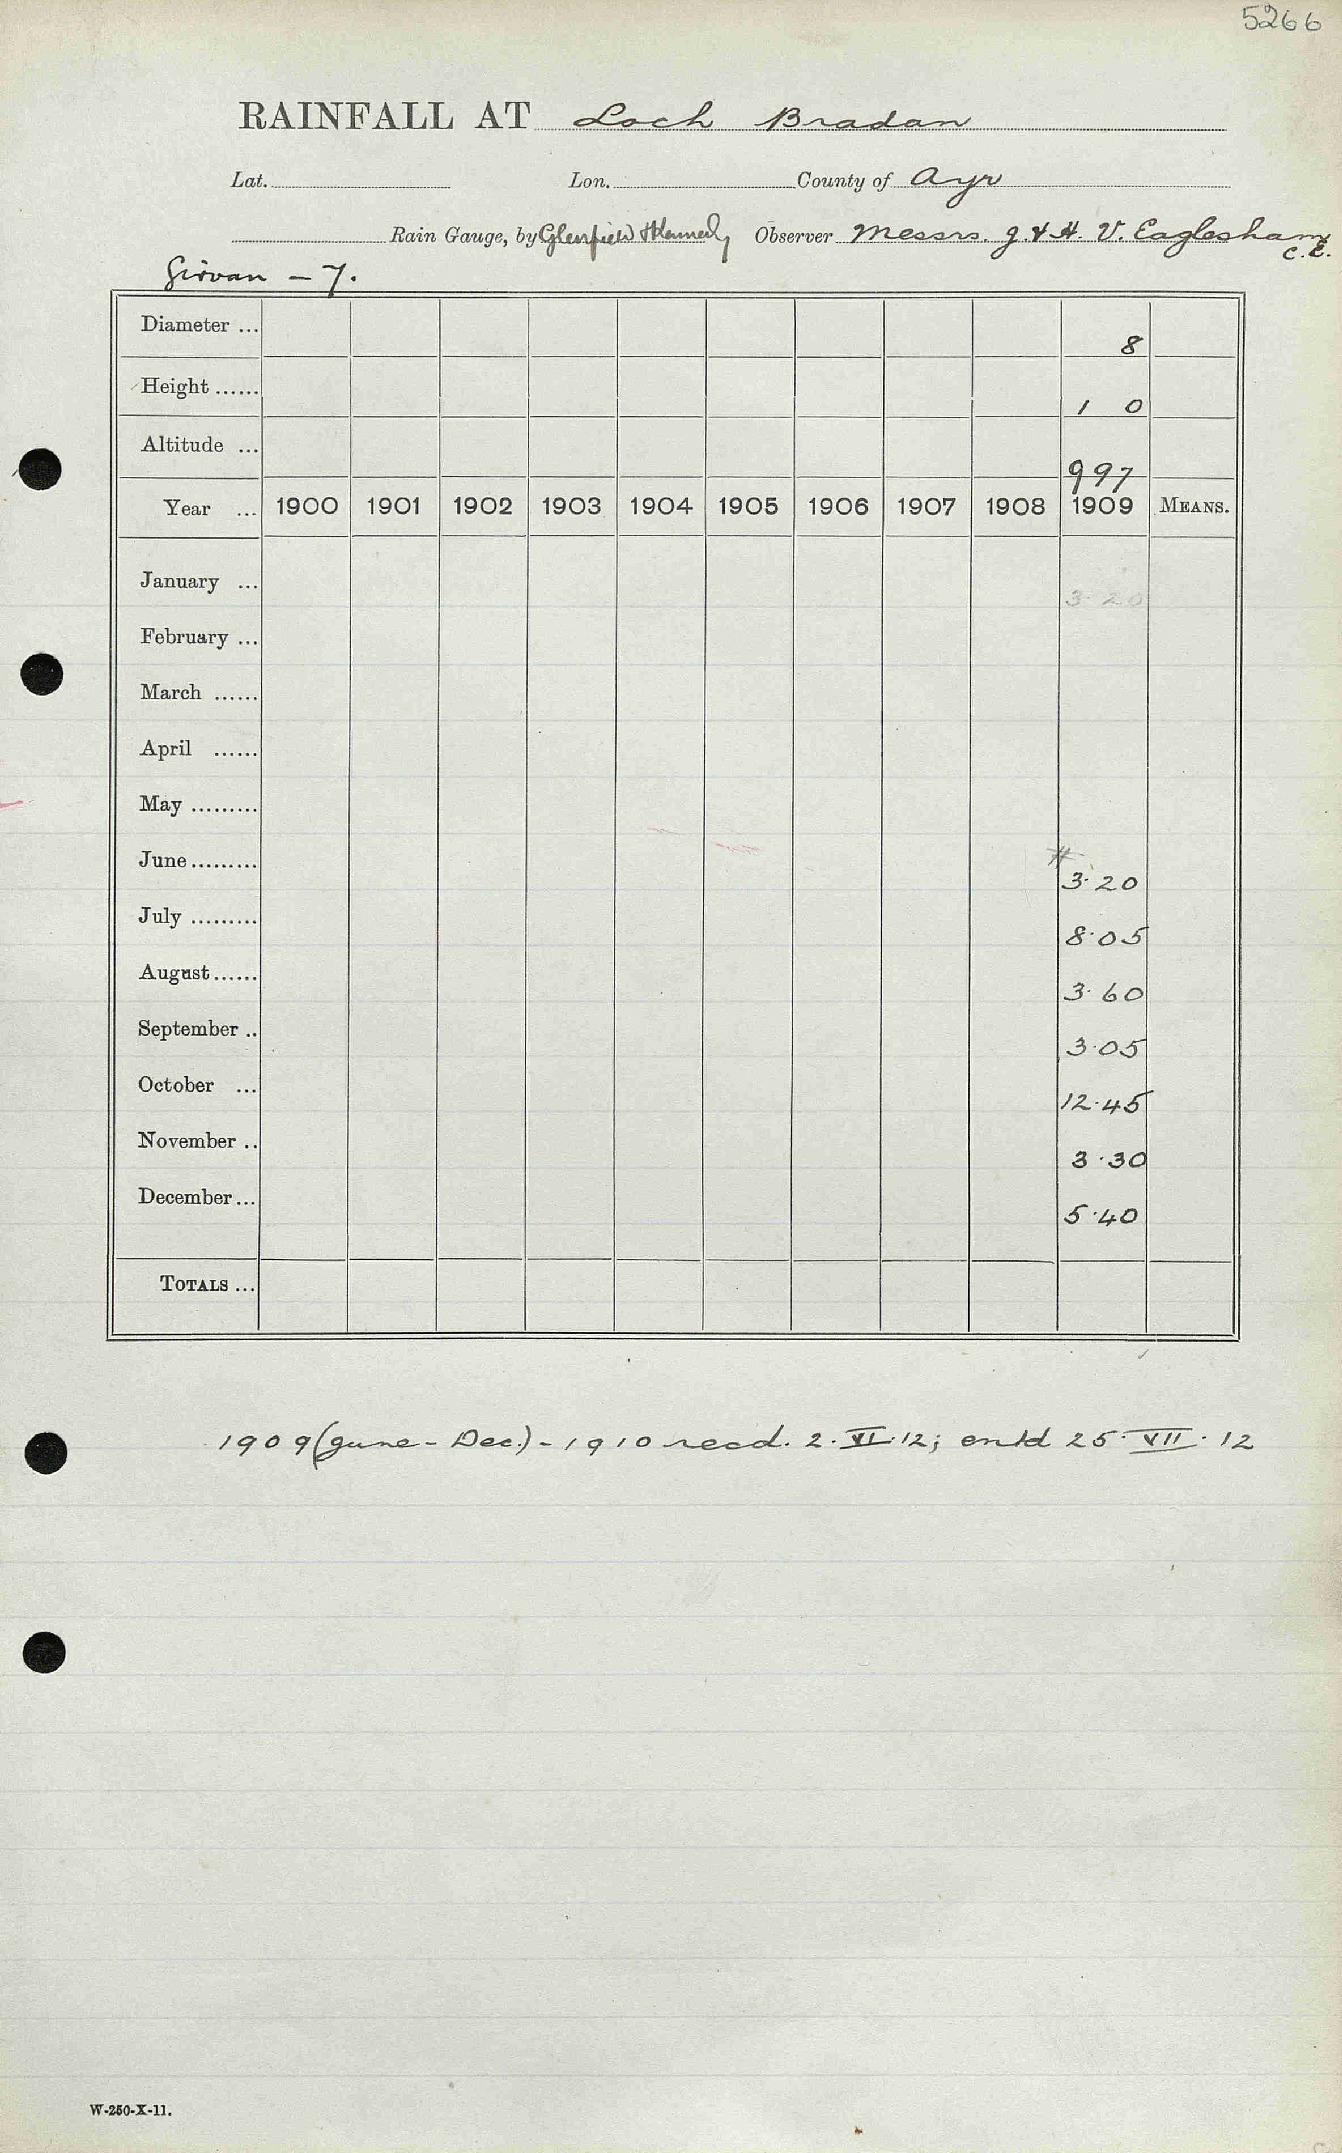 5266
RAINFALL AT Loch Bradan
Lat. Lon. County of Ayr
Rain Gauge, by Glenfield & Kennedy Observer Messrs. J & H. V. Eaglesham
C.E.
Girvan - 7.
Diameter ... 8
Height ...... 1 0
Altitude ... 997
Year ... 1900 1901 1902 1903 1904 1905 1906 1907 1908 1909 MEANS.
January ... 3.20
February ...
March ......
April ......
May .........
June ......... # 3.20
July ......... 8.05
August ...... 3.60
September .. 3.05
October ... 12.45
November .. 3.30
December ... 5.40
TOTALS ...
1909 (June - Dec.) - 1910 recd. 2.VI.12; entd 25.VII.12
W-250-X-11.